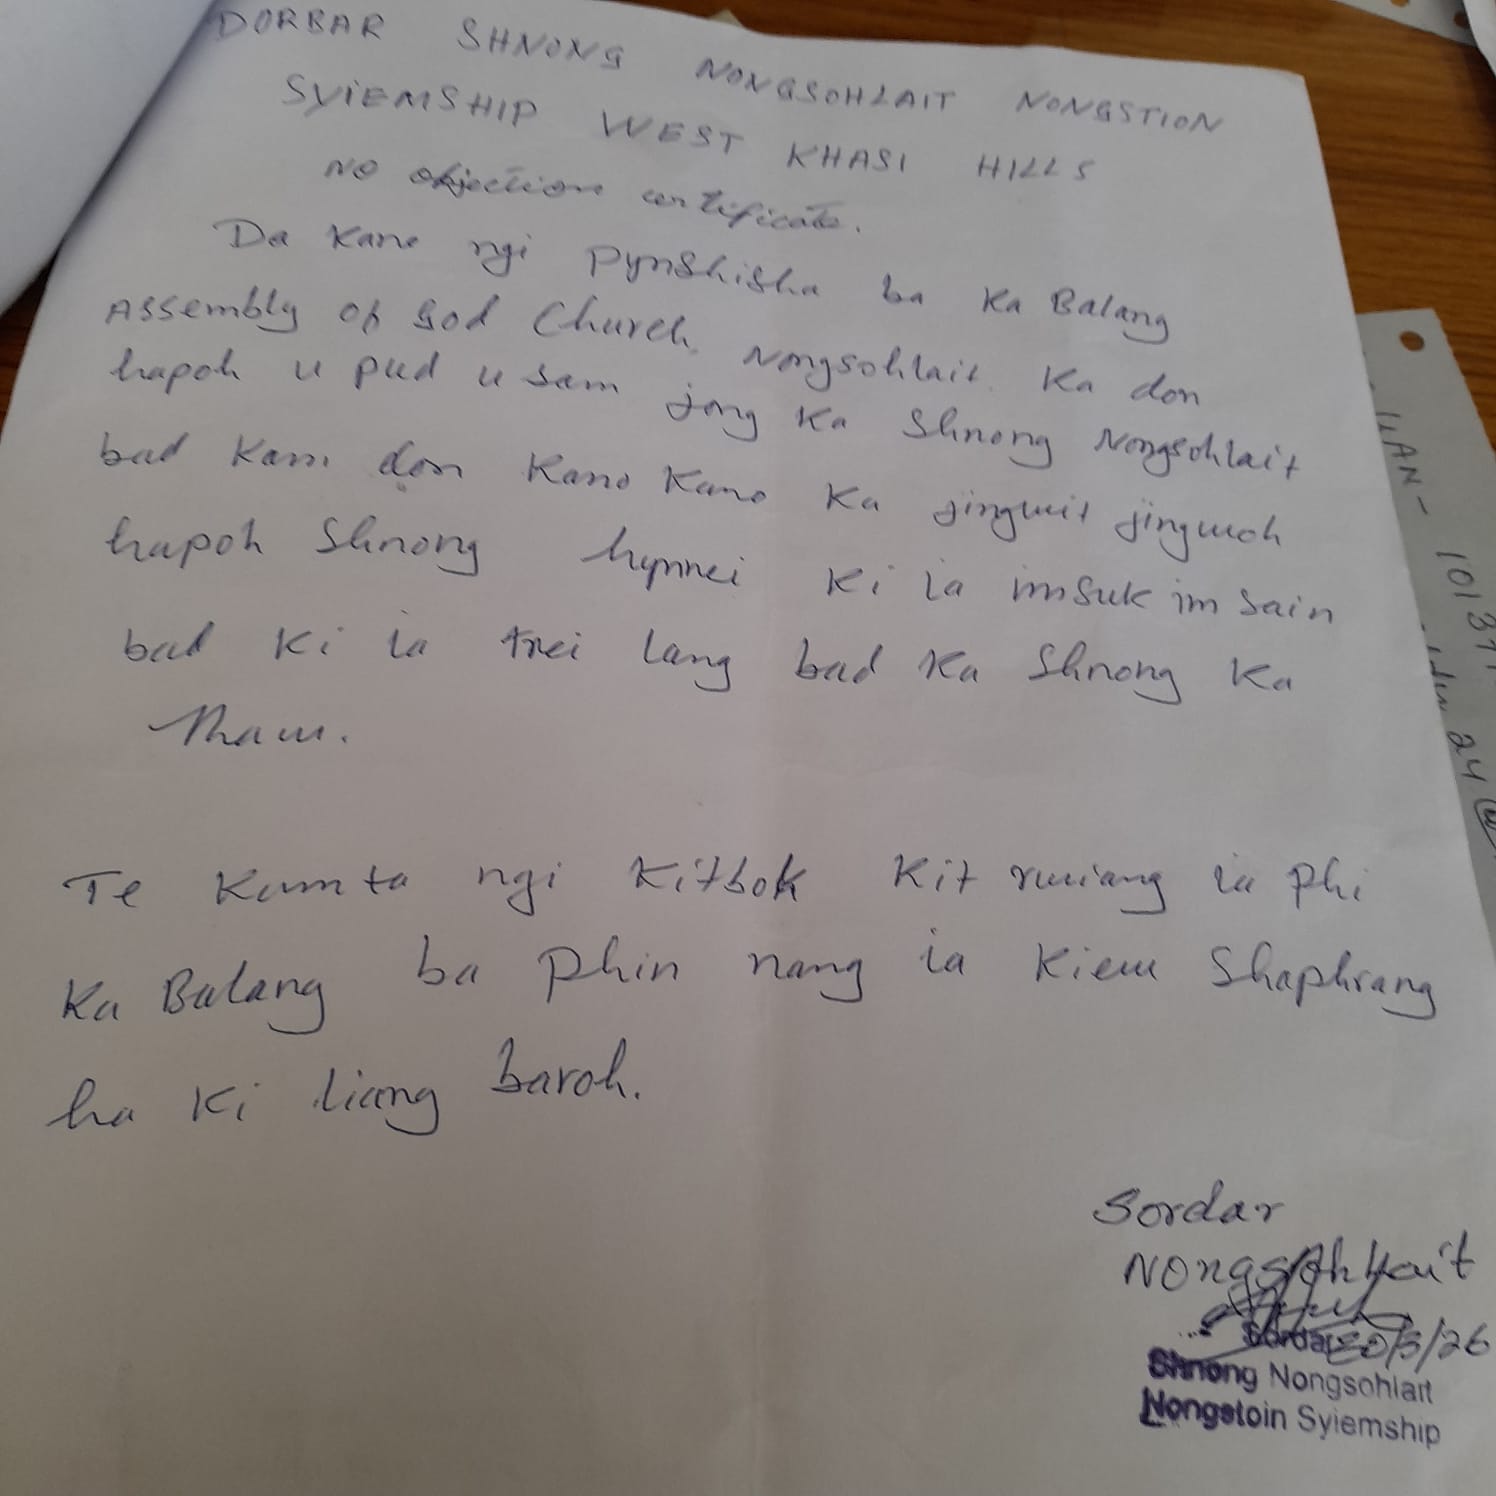 DORBAR SHNONG NONGSOHLAIT NONGSTION
SYIEMSHIP WEST KHASI HILLS
NO objection certificate.
Da Kane ngi Pynshisha ba Ka Balang
Assembly of God Church, Nongsohlait. Ka don
hapoh u pud u sam jong Ka Shnong Nongsohlait
bad Kam don Kano Kano Ka jingwit jingwoh
hapoh Shnong hynnei Ki ia imsuk im sain
bad Ki ia trei lang bad Ka Shnong Ka
Thaw.
Te Kumta ngi Kitbok Kit rwiang ia Phi
Ka Balang ba Phin nang ia Kiew Shaphrang
ha Ki liang baroh.
Sordar
Nongsohlait
Sordar 20/3/26
Shnong Nongsohlait
Nongstoin Syiemship